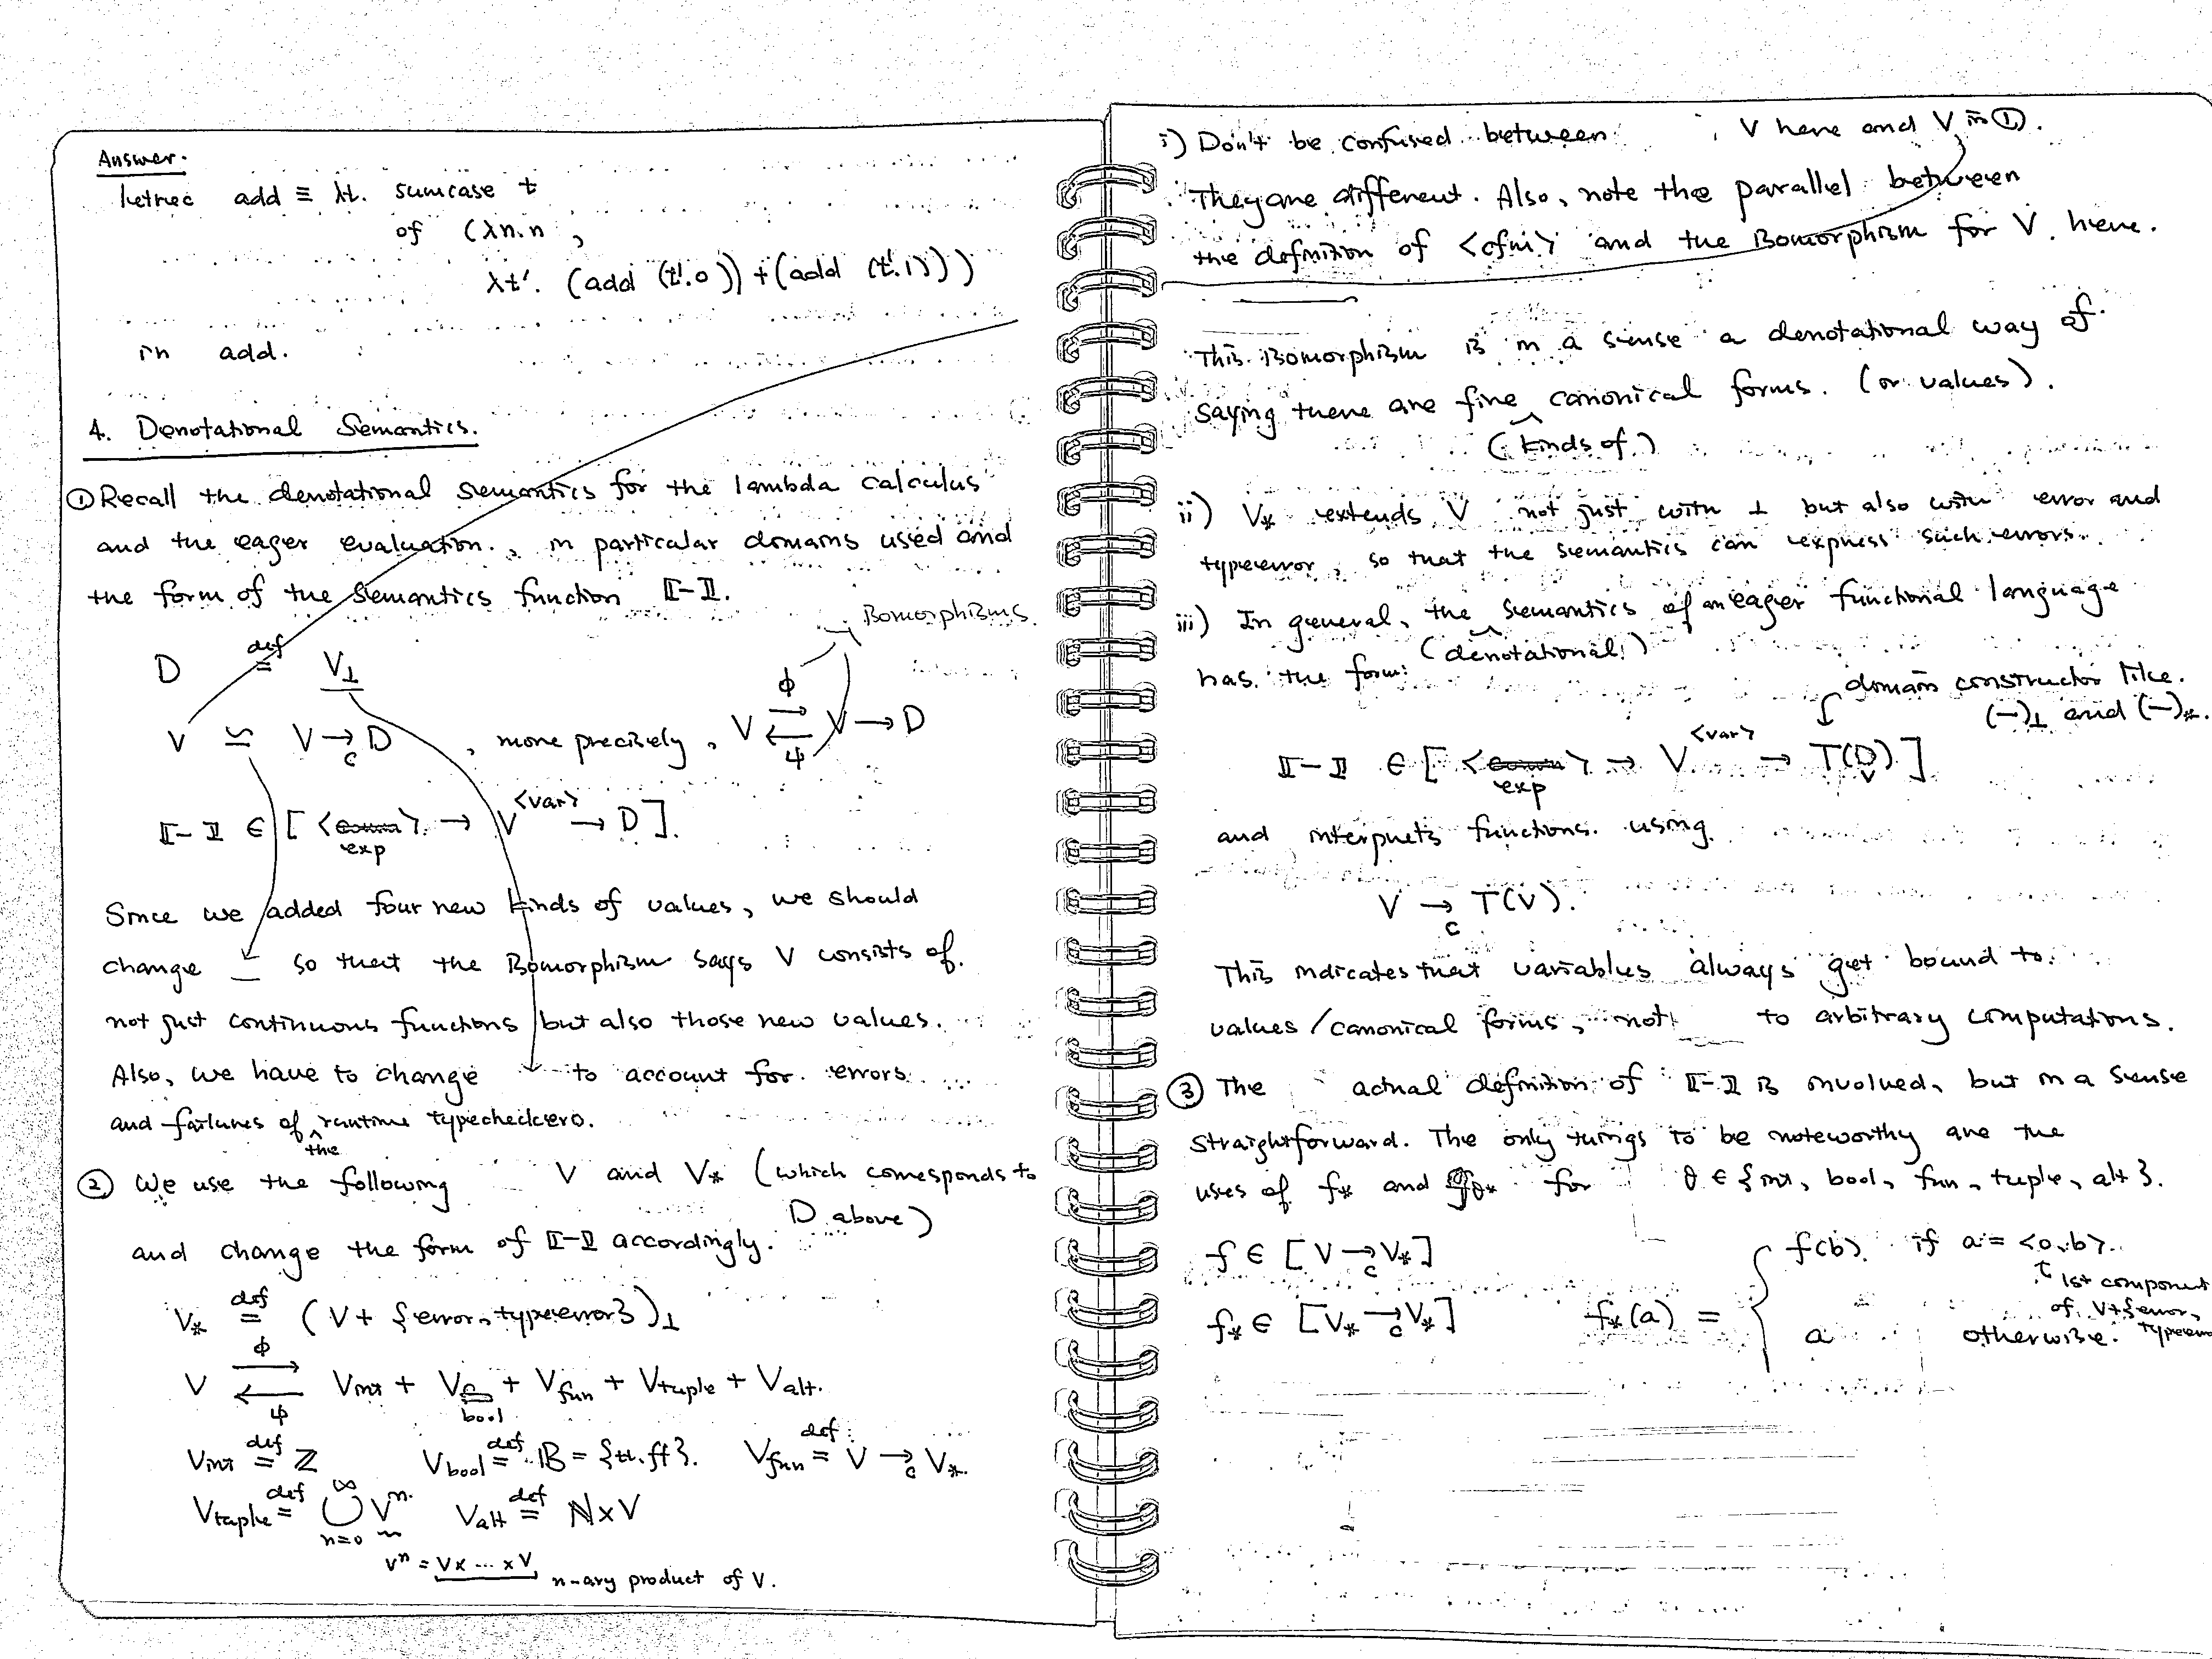 Answer.
letrec add ≡ λt. sumcase t
of (λn.n ,
λt'. (add (t'.0)) + (add (t'.1)))
in add.
4. Denotational Semantics.
① Recall the denotational semantics for the lambda calculus
and the eager evaluation, in particular domains used and
the form of the semantics function ⟦-⟧.
isomorphisms
D def= V⊥
V ≃ V →c D , more precisely, V ⇄ V → D
ϕ
ψ
⟦-⟧ ∈ [ <comm> → V<var> → D ].
exp
Since we added four new kinds of values, we should
change ≃ so that the isomorphism says V consists of
not just continuous functions but also those new values.
Also, we have to change to account for errors
and failures of the runtime typechecker.
② We use the following V and V* (which corresponds to
D above)
and change the form of ⟦-⟧ accordingly.
V* def= (V + {error, typeerror})⊥
V ⇄ Vint + Vbool + Vfun + Vtuple + Valt.
ϕ
ψ
Vint def= ℤ Vbool def= 𝔹 = {tt, ff}. Vfun def= V →c V*.
Vtuple def= ⋃n=0∞ Vⁿ Valt def= ℕ × V
Vⁿ = V × ... × V n-ary product of V.
i) Don't be confused between V here and V in ①.
They are different. Also, note the parallel between
the definition of <cfm> and the isomorphism for V here.
This isomorphism is in a sense a denotational way of
saying there are five canonical forms. (or values).
(kinds of)
ii) V* extends V not just with ⊥ but also with error and
typeerror, so that the semantics can express such errors.
iii) In general, the semantics of an eager functional language
(denotational)
has the form:
domain constructor like
(-)⊥ and (-)*.
⟦-⟧ ∈ [ <comm> → V<var> → T(D) ]
exp V
and interprets functions using
V →c T(V).
This indicates that variables always get bound to
values/canonical forms, not to arbitrary computations.
③ The actual definition of ⟦-⟧ is involved, but in a sense
straightforward. The only things to be noteworthy are the
uses of f* and fθ* for θ ∈ {int, bool, fun, tuple, alt}.
f ∈ [V →c V*]
f* ∈ [V* →c V*] f*(a) = { f(b) if a = <0,b>.
1st component
of V+{error,
a otherwise.